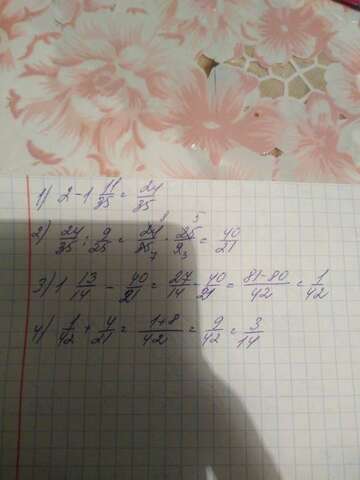 1) 2-1 11/35 = 24/35
2) 24/35 : 9/25 = 24/35 7 · 8 25/9 3 5 = 40/21
3) 1 13/14 - 40/21 = 27/14 - 40/21 = 81-80/42 = 1/42
4) 1/42 + 4/21 = 1+8/42 = 9/42 = 3/14